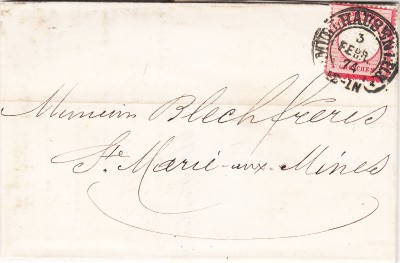 MÜLHAUSEN I. ELS.
3
FEBR.
74
12-1N
Messieurs Blech frères
Ste Marie-aux-Mines